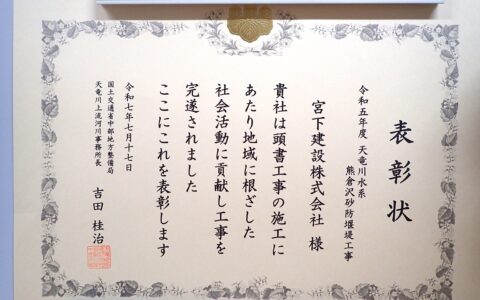 表彰状
令和五年度 天竜川水系
熊倉沢砂防堰堤工事
宮下建設株式会社 様
貴社は頭書工事の施工に
あたり地域に根ざした
社会活動に貢献し工事を
完遂されました
ここにこれを表彰します
令和七年七月十七日
国土交通省中部地方整備局
天竜川上流河川事務所長
吉田 桂治